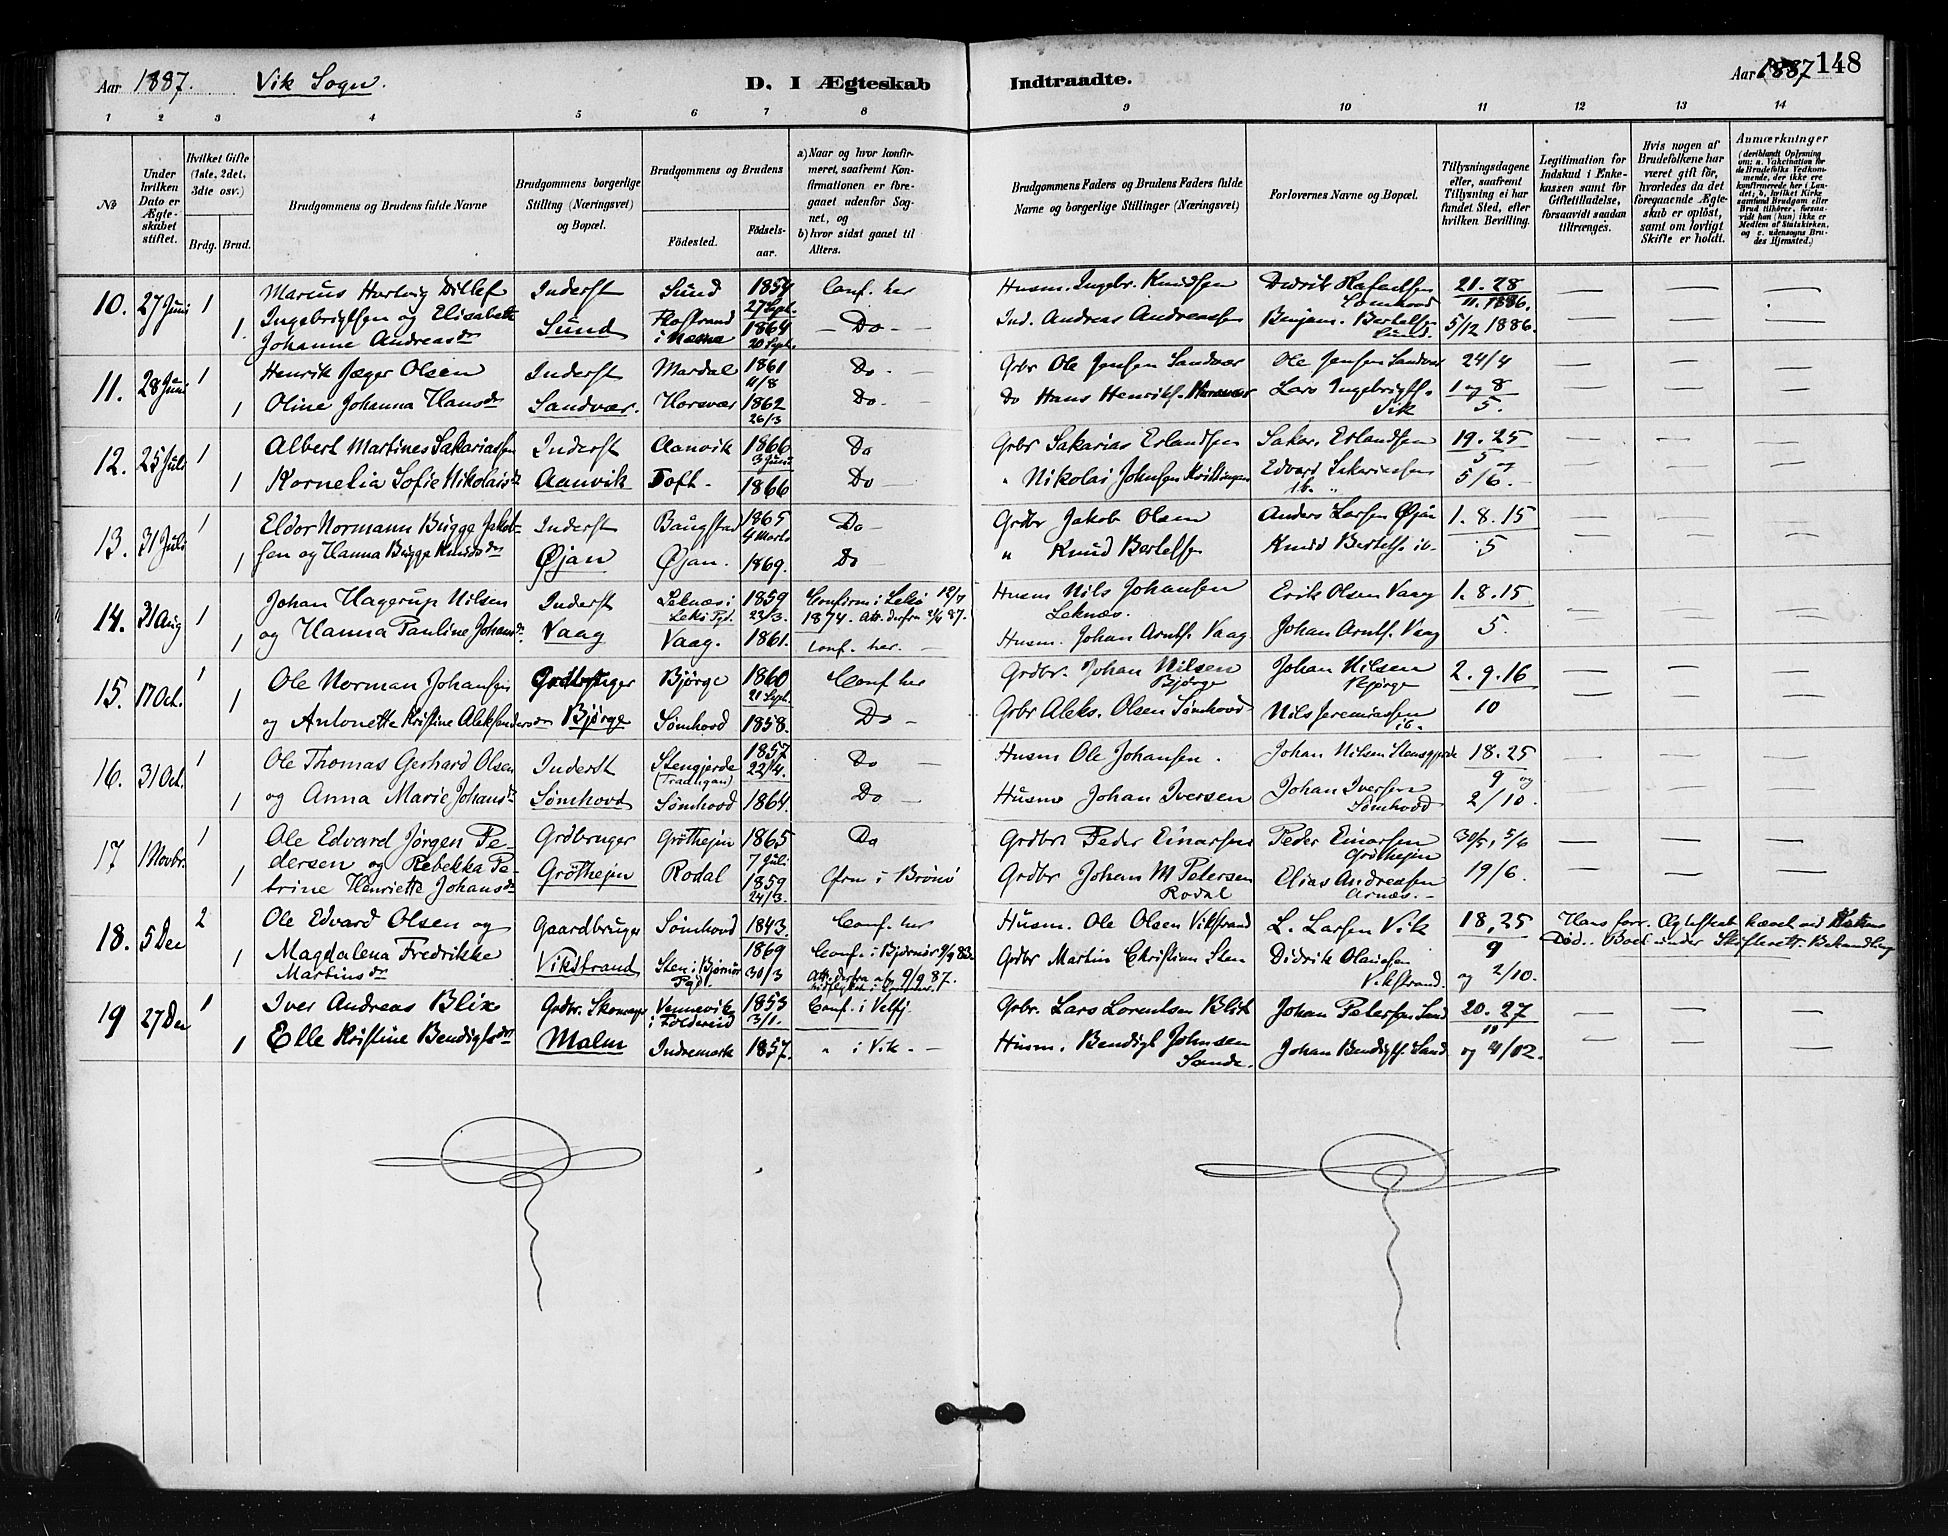 Aar 1887. Vik Sogn. D. I Ægteskab Indtraadte. Aar 1887 148
1 2 3 4 5 6 7 8 9 10 11 12 13 14
No
Under hvilken Dato er Ægteskabet stiftet.
Hvilket Gifte (1ste, 2det, 3dte osv.)
Brdg. Brud.
Brudgommens og Brudens fulde Navne
Brudgommens borgerlige Stilling (Næringsvei) og Bopæl.
Brudgommens og Brudens
Fødested. Fødselsaar.
a) Naar og hvor konfirmeret, saafremt Konfirmationen er foregaaet udenfor Sognet, og
b) hvor sidst gaaet til Alters.
Brudgommens Faders og Brudens Faders fulde Navne og borgerlige Stillinger (Næringsvei)
Forlovernes Navne og Bopæl.
Tillysningsdagene eller, saafremt Tillysning ei har fundet Sted, efter hvilken Bevilling.
Legitimation for Indskud i Enkekassen samt for Giftetilladelse, forsaavidt saadan tiltrænges.
Hvis nogen af Brudefolkene har været gift før, hvorledes da det foregaaende Ægteskab er opløst, samt om lovligt Skifte er holdt.
Anmærkninger
(deriblandt Oplysning om: a. Vakcination for de Brudefolks Vedkommende, der ikke ere konfirmerede her i Landet; b. hvilket Kirkesamfund Brudgom eller Brud tilhører, forsaavidt han (hun) ikke er Medlem af Statskirken, og c. udensogns Brudes Hjemsted.)
10. 27 Juni 1 Marius Hartvig Ditlef Inderst Sund 1854 Conf. her Husm. Ingebr. Knudsen Didrik Rafaelsen 21. 28
Ingebrigtsen og Elisabeth 27 Sept. Sømhovd 11. 1886.
1. Johanne Andreasdr Sund Flostrand i Næsna 1864 20 Sept. - Do - Ind. Andreas Andreassen Benjam. Bertelsen Sund. 5/12 1886.
11. 28 Juni 1 Henrik Jæger Olsen Inderst Mardal 1861 11/8 Do - Grbr Ole Jensen Sandvær Ole Jensen Sandvær 24/4
1 Oline Johanna Hansdr Sandvær. Horsvær 1862 26/3 Do - Do Hans Henriks. Horsvær Lars Ingebrigts. Vik 1 og 8 5.
12. 25 Juli 1 Albert Martines Sakariassen Inderst Aanvik 1866 3 Juni Do Grbr Sakarias Erlandsen Sakar. Erlandsen 19. 25 5
1 Kornelia Sofie Nikolaisdr Aanvik Toft. 1866 Do - " Nikolai Johnsen Edvard Sakariassen ib. 5/6. -
13. 31 Juli 1 Eldor Normann Bugge Jakob- Inderst Baugstad 1865 4 Marts Do - Grdbr Jakob Olsen Anders Larsen Øjan 1. 8. 15
1 sen og Hanna Bugge Knudsdr Øjan Øjan. 1869. Do - " Knud Bertelsen Knud Bertels. ib. 5
14. 31 Aug 1 Johan Hagerup Nilsen Inderst Leknæs i Lekø Pgd. 1859 22/3. Confirm. i Lekø 12/7 Husm Nils Johansen Leknæs. Erik Olsen Vaag 1. 8. 15
1874. Att. derfra 2/4 87.
1 og Hanna Pauline Johansdr. Vaag Vaag. 1861. conf. her. - Husm. Johan Arnts. Vaag Johan Arnts. Vaag 5.
15. 17 Oct. 1 Ole Norman Johansen Grdbruger Bjørge 1860 21 Sept. Conf her Grdbr. Johan Nilsen Bjørge Johan Nilsen Bjørge 2. 9. 16
1 og Antonette Kristine Aleksandersdr Bjørge Sømhovd 1858. Do - Grbr Aleks. Olsen Sømhovd Nils Jeremiassen ib. 10
16. 31 Oct. 1 Ole Thomas Gerhard Olsen Inderst Stengjerde 1857 22/4. Do - Husm Ole Johansen. Johan Nilsen Stensgjerde 18. 25
9 og
1 og Anna Marie Johansdr Sømhovd Sømhovd 1864. Do - Husm Johan Iversen Johan Iversen Sømhovd 2/10.
17 1 Novbr. 1 Ole Edvard Jørgen Pe- Grdbruger Grøthejm 1865 7 Juli Do Grdbr Peder Einarsen Peder Einarsen Grøthejm 30/5, 5/6
dersen og Rebekka Pe-
1 trine Henriette Johansdr Grøthejm Rodal 1859 24/3. Cfrm i Brønø Grdbr Johan M Petersen Rodal Elias Andreasen Arnæs. 19/6.
18. 5 Dec 2 Ole Edvard Olsen og Gaardbruger Sømhovd 1843. Conf. her Husm. Ole Olsen Vikstrand L. Larsen Vik 18, 25 9 Hans forr. Ægteskab hævet ved Død. Boet under Skifteretts. Behandling
1 Magdalena Fredrikke Martinsdr Vikstrand Sten i Bjørnør Pgd. 1869 30/3 Conf. i Bjørnør Att. derfra af 9/9 87. Grdbr Martin Christian Sten Didrik Olaisen Vikstrand. og 2/10.
19 27 Dec 1 Iver Andreas Blix Grdbr. Skomager Vennevik i Foldereid 1853 3/1. Conf. i Velfj. Grbr. Lars Lorentsen Blix Johan Petersen Sund 20. 27 11
1 Elle Kristine Bendigtsdr Malm Indremark 1857. " i Vik. - Husm. Bendigt Johnsen Sande. Johan Bendigts. Sand og 4/12.